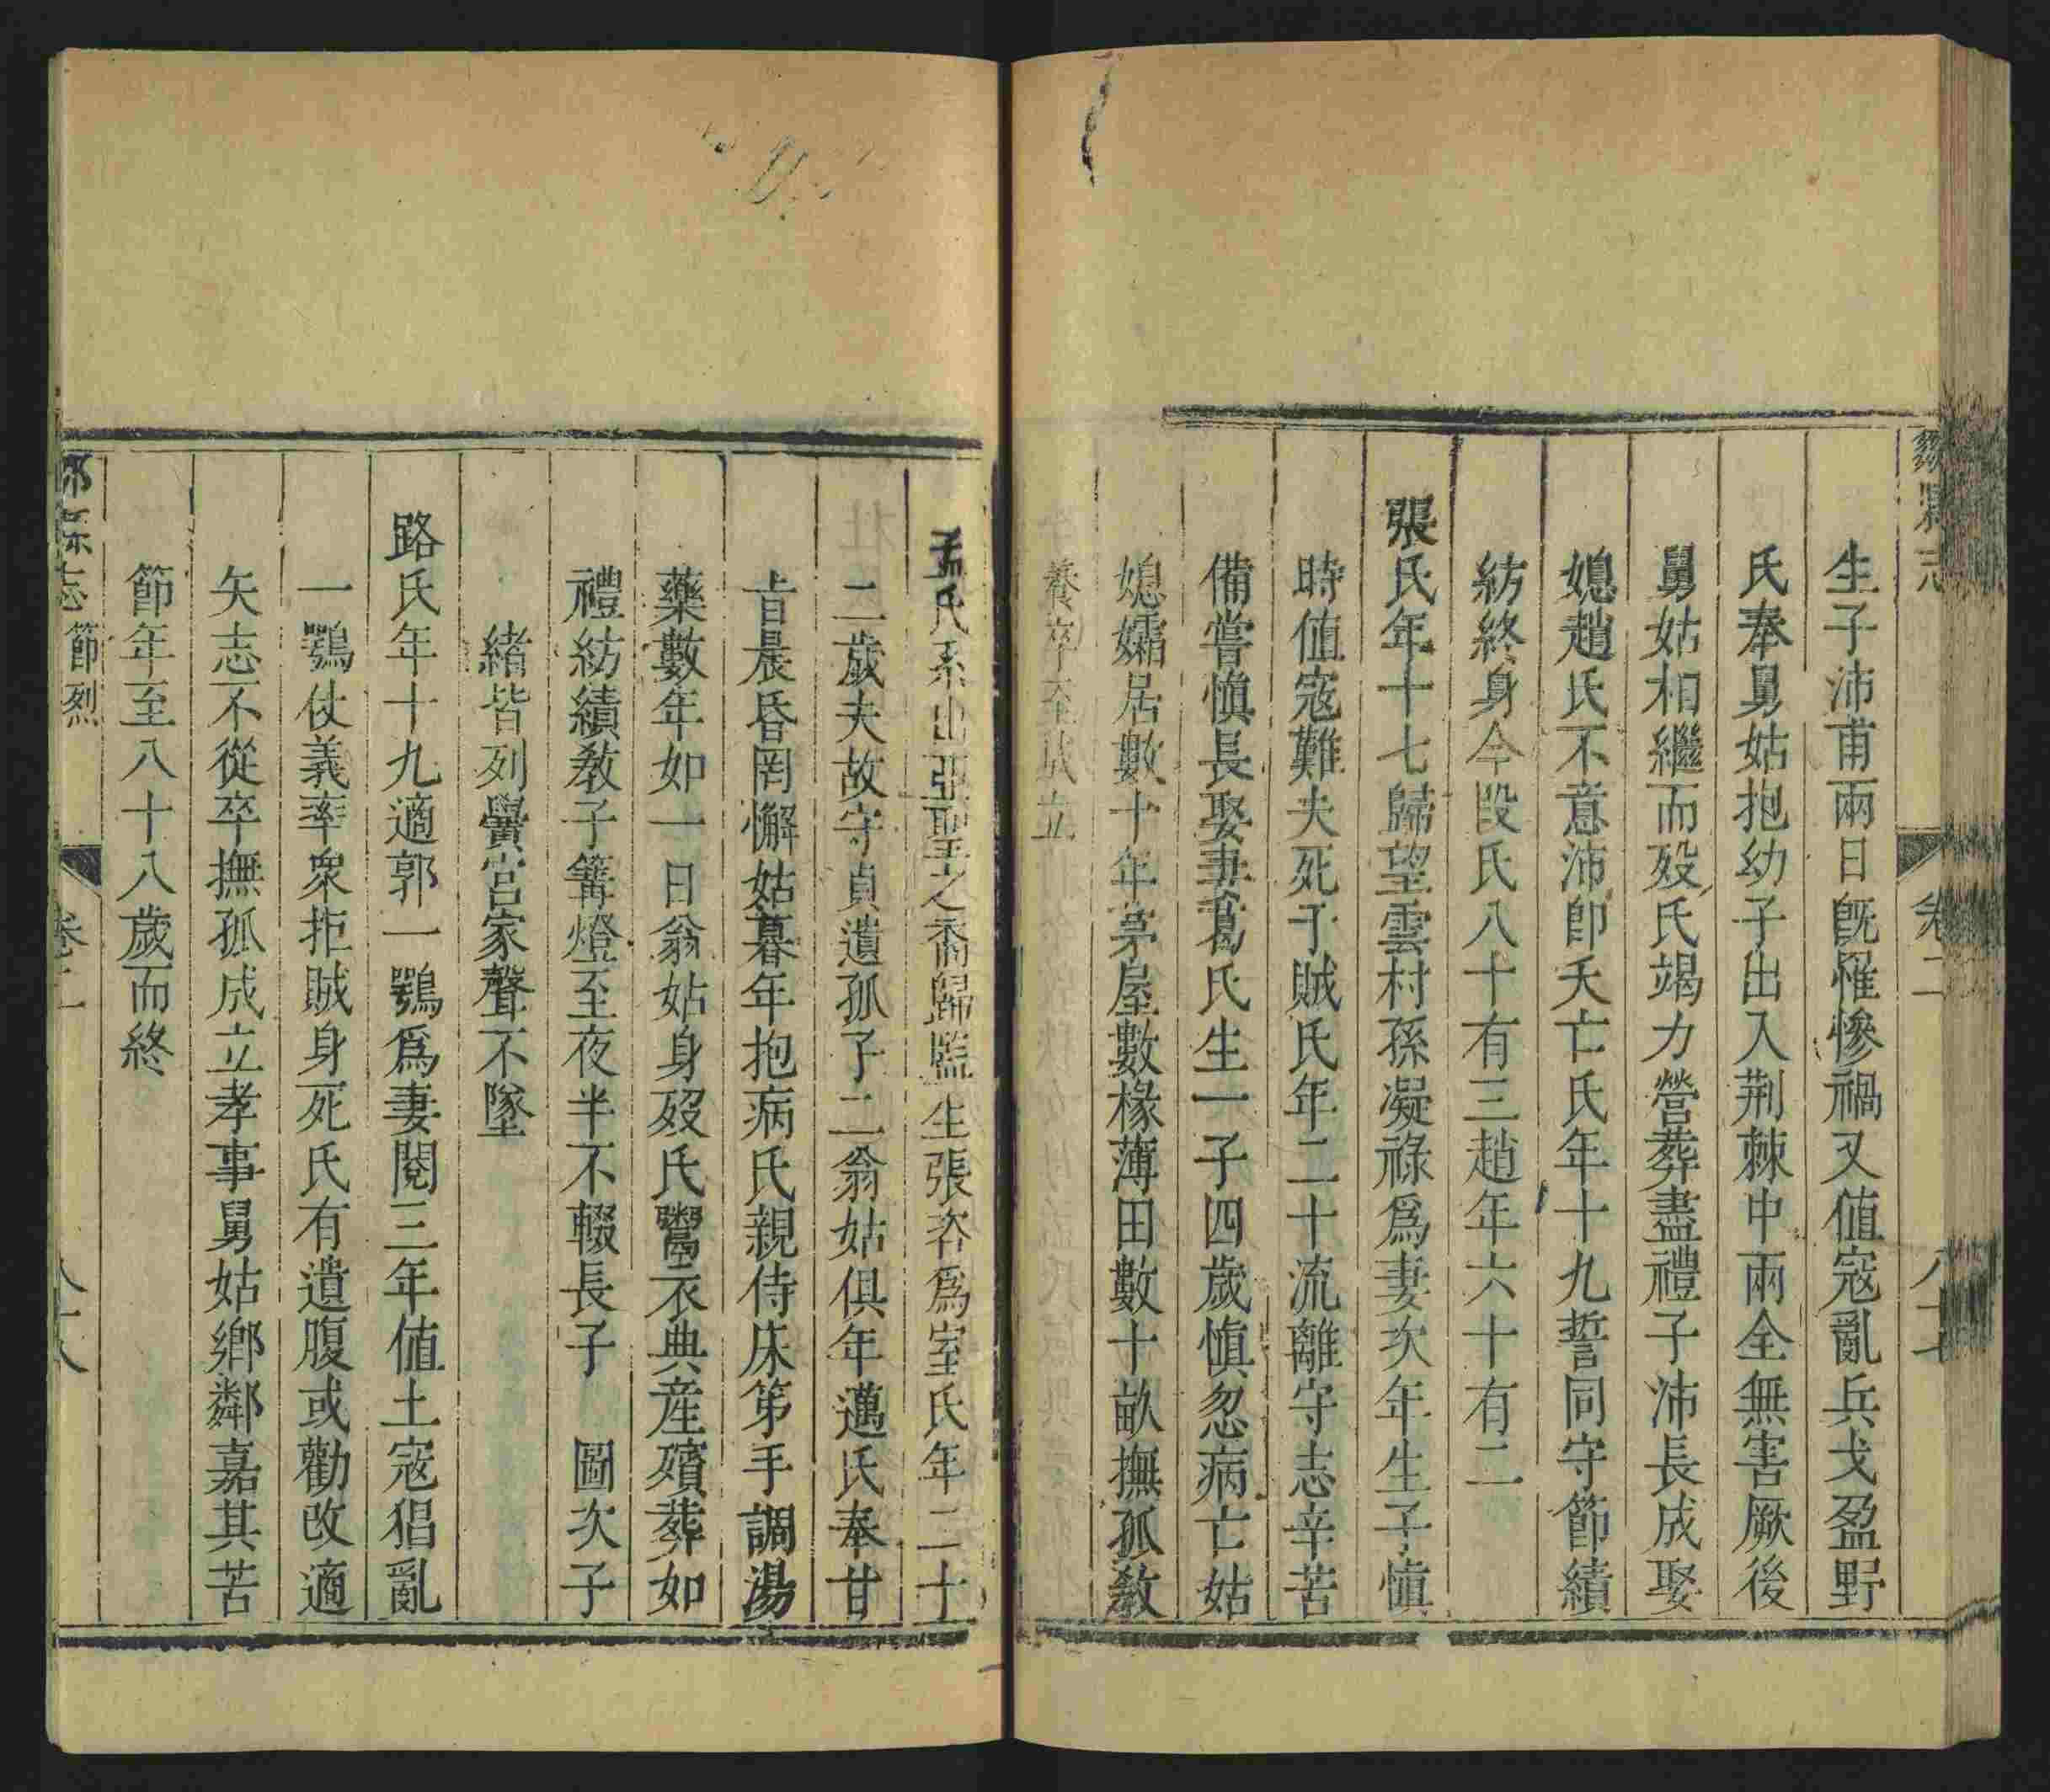 鄒縣志 卷二
生子沛甫兩日旣罹慘禍又値寇亂兵戈盈野
氏奉舅姑抱幼子出入荆棘中兩全無害厥後
舅姑相繼而歿氏竭力營葬盡禮子沛長成娶
媳趙氏不意沛卽夭亡氏年十九誓同守節績
紡終身今段氏八十有三趙年六十有二
張氏年十七歸望雲村孫凝祿爲妻次年生子愼
時値寇難夫死于賊氏年二十流離守志辛苦
備嘗愼長娶妻葛氏生一子四歲愼忽病亡姑
媳孀居數十年茅屋數椽薄田數十畝撫孤敎
養卒至成立
孟氏系出亞聖之裔歸監生張容爲室氏年二十
二歲夫故守貞遺孤子二翁姑俱年邁氏奉甘
旨晨昏罔懈姑暮年抱病氏親侍床笫手調湯
藥數年如一日翁姑身歿氏鬻衣典産殯葬如
禮紡績敎子篝燈至夜半不輟長子圖次子
緒皆列黌宮家聲不墜
路氏年十九適郭一鶚爲妻閱三年値土寇猖亂
一鶚仗義率衆拒賊身死氏有遺腹或勸改適
矢志不從卒撫孤成立孝事舅姑鄉鄰嘉其苦
節年至八十八歲而終
鄒縣志 節烈 卷二 八十八